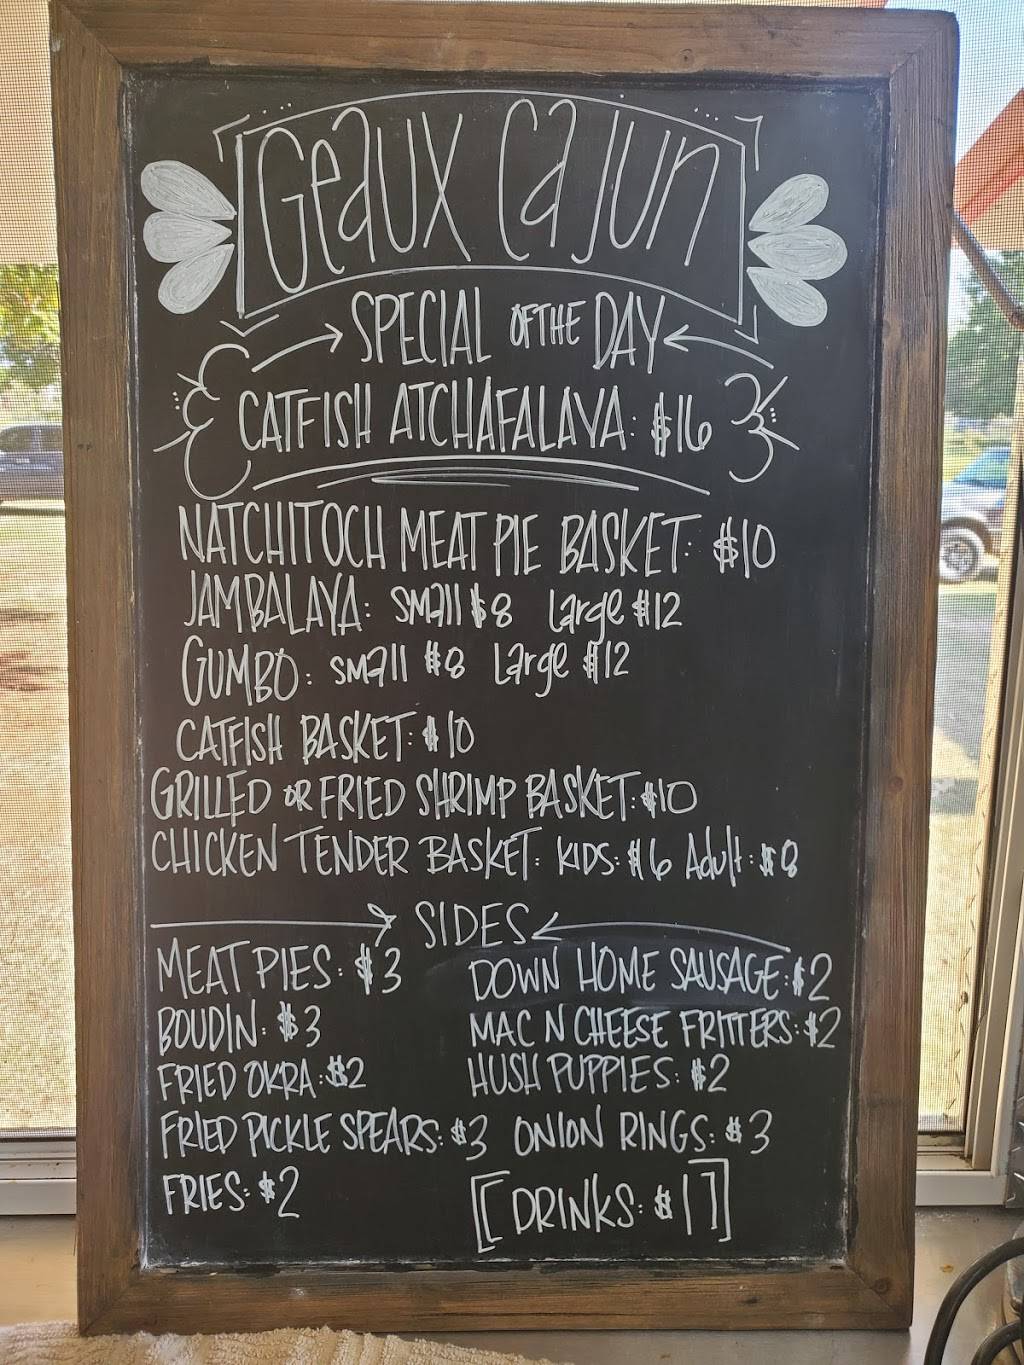 Geaux Cajun
SPECIAL OF THE DAY
CATFISH ATCHAFALAYA: $16
NATCHITOCH MEAT PIE BASKET: $10
JAMBALAYA: small $8 Large $12
GUMBO: small $8 Large $12
CATFISH BASKET: $10
GRILLED OR FRIED SHRIMP BASKET: $10
CHICKEN TENDER BASKET: KIDS: $6 Adult: $8
SIDES
MEAT PIES: $3
BOUDIN: $3
FRIED OKRA: $2
FRIED PICKLE SPEARS: $3
FRIES: $2
DOWN HOME SAUSAGE: $2
MAC N CHEESE FRITTERS: $2
HUSH PUPPIES: $2
ONION RINGS: $3
[DRINKS: $1]